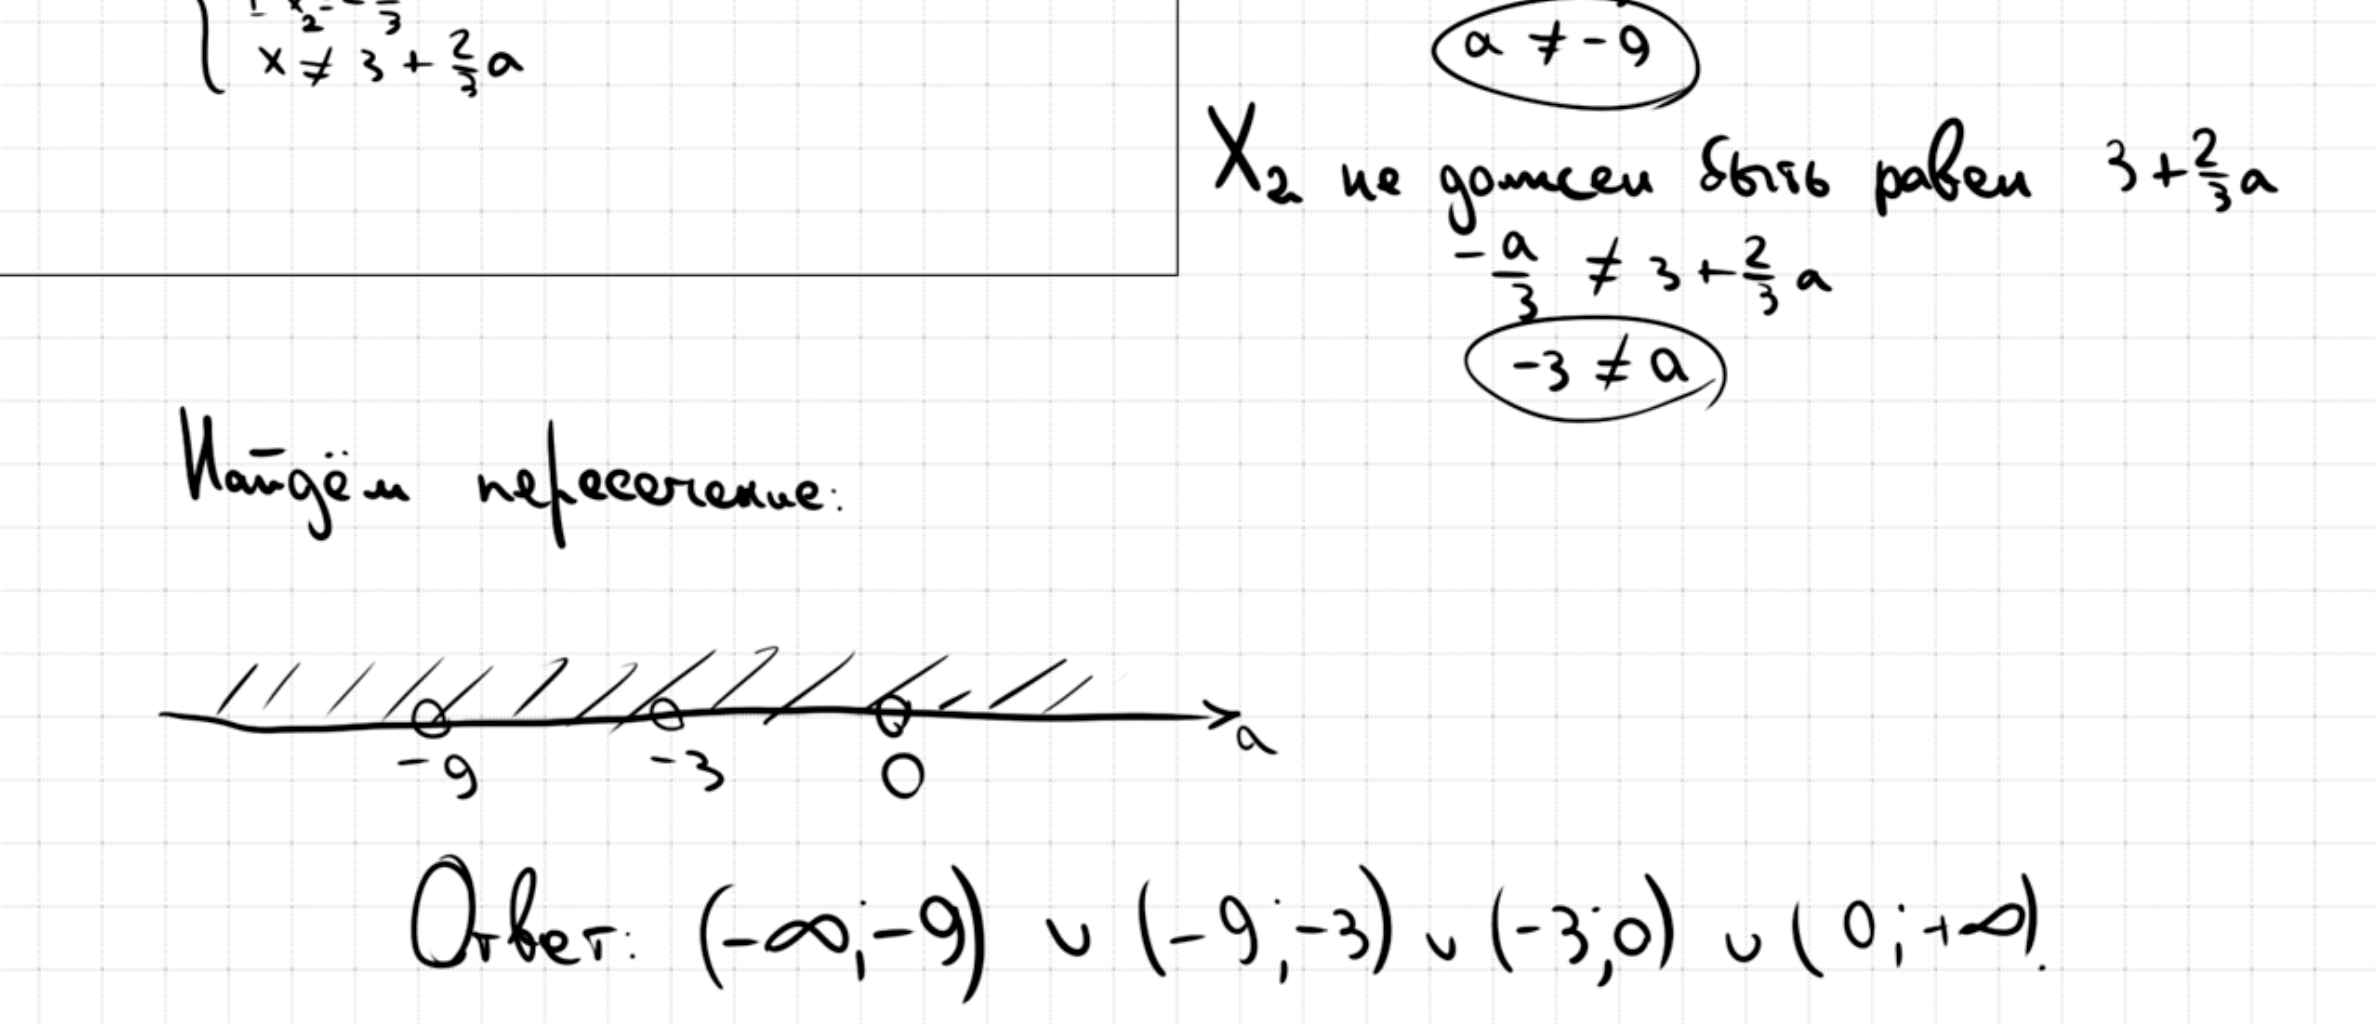 x ≠ 3 + 2/3 a
a ≠ -9
X₂ не должен быть равен 3 + 2/3 a
-a/3 ≠ 3 + 2/3 a
-3 ≠ a
Найдём пересечение:
-9 -3 0 a
Ответ: (-∞; -9) ∪ (-9; -3) ∪ (-3; 0) ∪ (0; +∞).